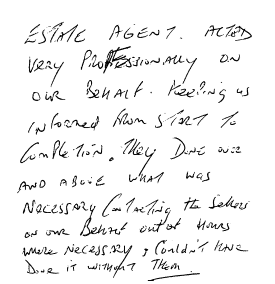 ESTATE AGENT. ACTED
VERY PROFESSIONALLY ON
OUR BEHALF. KEEPING US
INFORMED FROM START TO
COMPLETION. THEY DONE OVER
AND ABOVE WHAT WAS
NECESSARY CONTACTING THE SELLERS
ON OUR BEHALF OUT OF HOURS
WHERE NECESSARY, COULDN'T HAVE
DONE IT WITHOUT THEM.